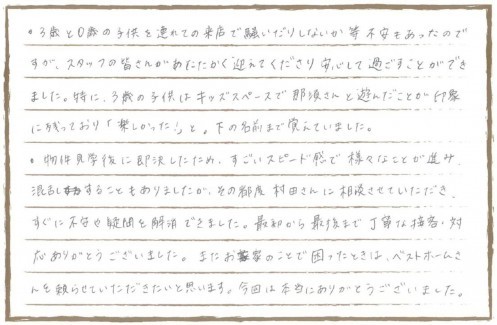 ・3歳と0歳の子供を連れての来店で騒いだりしないか等 不安もあったので
すが、スタッフの皆さんがあたたかく迎えてくださり 安心して過ごすことができ
ました。特に、3歳の子供はキッズスペースで那須さんと遊んだことが印象
に残っており「楽しかった!」と。下の名前まで覚えていました。
・物件見学後に即決したため、すごいスピード感で様々なことが進み、
混乱することもありましたが、その都度 村田さんに相談させていただき、
すぐに不安や疑問を解消できました。最初から最後まで丁寧な接客・対
応ありがとうございました。またお家のことで困ったときは、ベストホームさ
んを頼らせていただきたいと思います。今回は本当にありがとうございました。